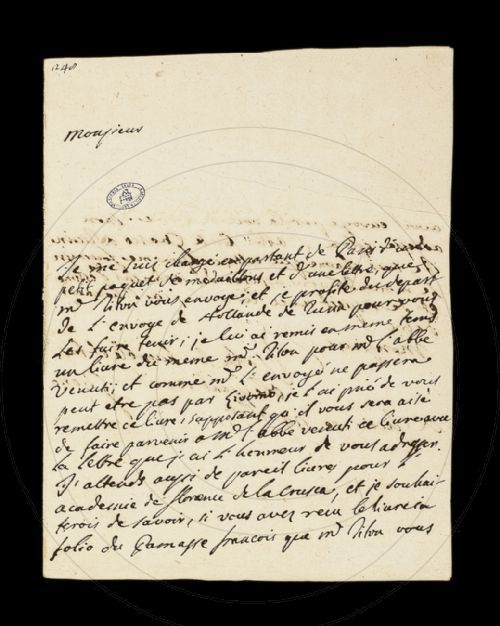 1248
Monsieur
Je me suis chargé en partant de Paris d'un
petit paquet de medaillons et d'une lettre, que
mr Titon vous envoye; et je profite du depart
de L'envoyé de hollande de Turin pour vous
Les faire tenir; je lui ai remis en meme tems
un livre du meme mr. Titon pour mr L'abbé
Venuti; et comme mr L'envoyé ne passera
peut etre pas par Livorno, je l'ai prié de vous
remettre ce livre; supposant qu'il vous sera aisé
de faire parvenir a mr L'abbé venuti ce livre avec
la lettre que j'ai L'honneur de vous adresser.
J'attends aussi de pareil livres pour L'
academie de florence de la Crusca, et je souhai-
terois de savoir, si vous avez recu le livre in
folio du Parnasse francois que mr Titon vous